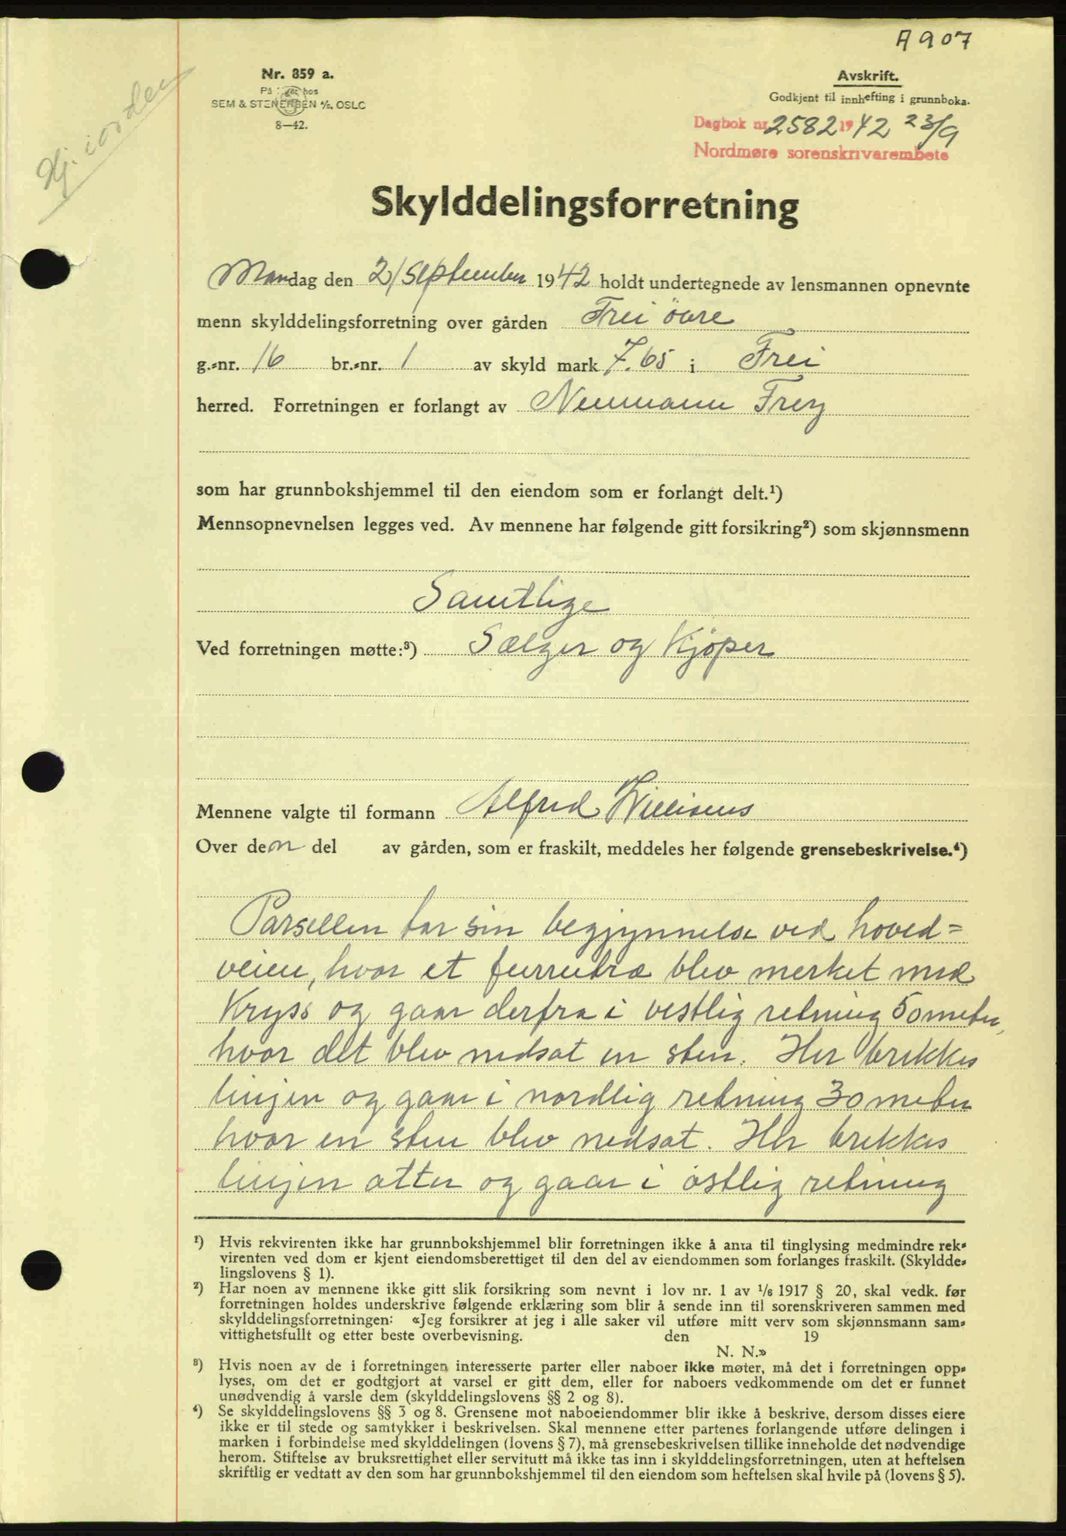 A907
Nr. 859 a.
SEM & STENERSEN A/S, OSLO
8—42.
Avskrift.
Godkjent til innhefting i grunnboka.
Dagbok nr. 2582 1942 23/9
Nordmøre sorenskrivarembete
Skylddelingsforretning
Mandag den 21/September 1942 holdt undertegnede av lensmannen opnevnte
menn skylddelingsforretning over gården Frei övre
g.-nr. 16 br.-nr. 1 av skyld mark 7.65 i Frei
herred. Forretningen er forlangt av Neumann Frey
som har grunnbokshjemmel til den eiendom som er forlangt delt.¹)
Mennsopnevnelsen legges ved. Av mennene har følgende gitt forsikring²) som skjønnsmenn
Samtlige
Ved forretningen møtte:³) Sælger og Kjöper
Mennene valgte til formann Alfred
Over den del av gården, som er fraskilt, meddeles her følgende grensebeskrivelse.⁴)
Parsellen tar sin begjynnelse ved hoved=
veien, hvor et furrutræ blev merket med
Kryss og gaar derfra i vestlig retning 50 meter,
hvor det blev nedsat en sten. Her brekkes
linjen og gaar i nordlig retning 30 meter
hvor en sten blev nedsat. Her brekkes
linjen atter og gaar i östlig retning
¹) Hvis rekvirenten ikke har grunnbokshjemmel blir forretningen ikke å anta til tinglysing medmindre rek-
virenten ved dom er kjent eiendomsberettiget til den del av eiendommen som forlanges fraskilt. (Skyldde-
lingslovens § 1).
²) Har noen av mennene ikke gitt slik forsikring som nevnt i lov nr. 1 av 1/6 1917 § 20, skal vedk. før
forretningen holdes underskrive følgende erklæring som blir å sende inn til sorenskriveren sammen med
skylddelingsforretningen: «Jeg forsikrer at jeg i alle saker vil utføre mitt verv som skjønnsmann sam-
vittighetsfullt og etter beste overbevisning. den 19
N. N.»
³) Hvis noen av de i forretningen interesserte parter eller naboer ikke møter, må det i forretningen opp-
lyses, om det er godtgjort at varsel er gitt dem, eller for naboers vedkommende om det er funnet
unødvendig å varsle dem (skylddelingslovens §§ 2 og 8).
⁴) Se skylddelingslovens §§ 3 og 8. Grensene mot naboeiendommer blir ikke å beskrive, dersom disses eiere
ikke er til stede og samtykker i beskrivelsen. Skal mennene etter partenes forlangende utføre delingen i
marken i forbindelse med skylddelingen (lovens § 7), må grensebeskrivelsen tillike inneholde det nødvendige
herom. Stiftelse av bruksrettighet eller servitutt må ikke tas inn i skylddelingsforretningen, uten at heftelsen
skriftlig er vedtatt av den som har grunnbokshjemmel til den eiendom som heftelsen skal hvile på (lovens § 5).